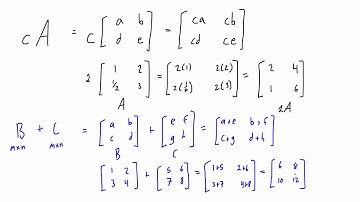 cA = c [a b; d e] = [ca cb; cd ce]
2 [1 2; 1/2 3] = [2(1) 2(2); 2(1/2) 2(3)] = [2 4; 1 6]
A 2A
B + C = [a b; c d] + [e f; g h] = [a+e b+f; c+g d+h]
m×n m×n B C
[1 2; 3 4] + [5 6; 7 8] = [1+5 2+6; 3+7 4+8] = [6 8; 10 12]